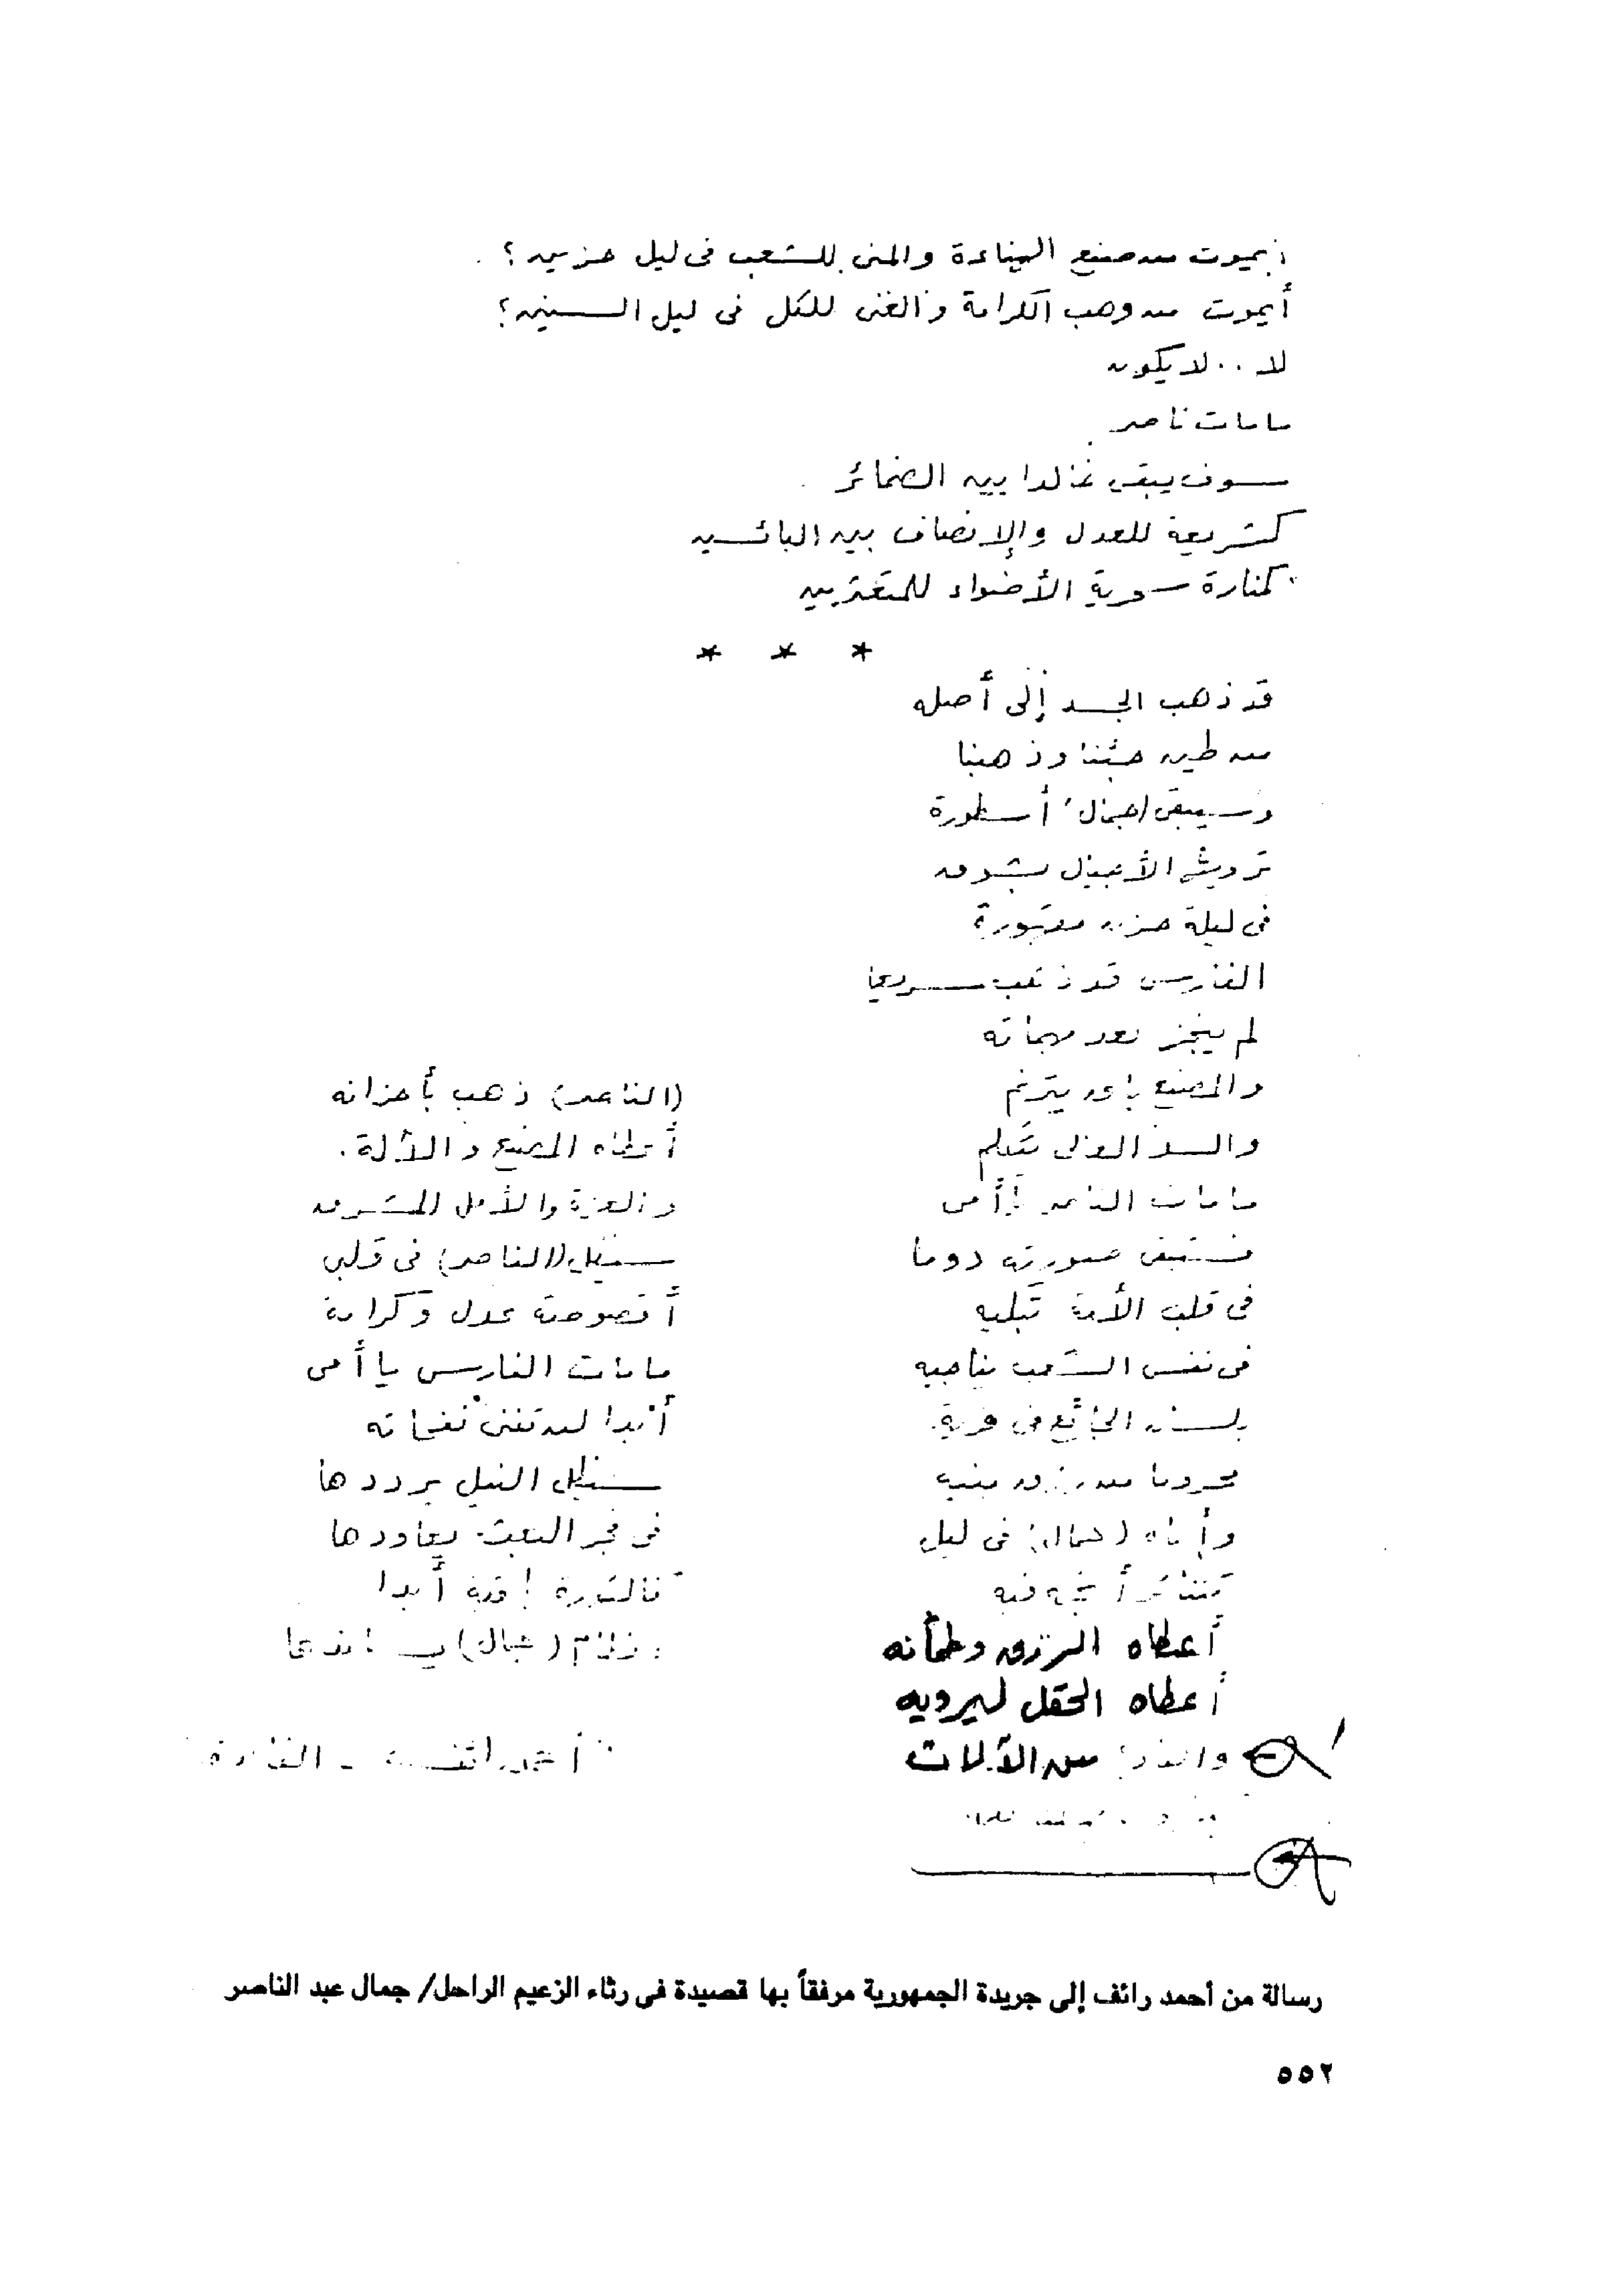 أيموت من صنع الهناءة والمنى للشعب فى ليل حزين ؟
أيموت من وهب الكرامة والغنى للكل فى ليل السنين ؟
لا .. لا يكون
ما مات ناصر
سوف يبقى خالدا بين الضمائر
كشريعة للعدل والإنصاف بين البائسين
كمنارة سحرية الأضواء للمتعبين
* * *
قد ذهب الجسد إلى أصله
من طين جئنا وذهبنا
وسيبقى (جمال) أسطورة
ترويها الأجيال بشوق
فى ليلة حزن مقهورة
الفارس قد ذهب سريعا
لم ينجز بعد مهماته
والمصنع يترنم
والسد العالى يتكلم
ما مات الناصر يا أمى
فستبقى صورته دوما
فى قلب الأمة تبكيه
فى نفس الشعب يناجيه
الجائع فى قرية
محروما من
وأتاه (جمال) فى ليل
أعطاه الرزق وطمأنه
أعطاه الحقل ليرويه
من الآلات
(الناصر) ذهب بأحزانه
أعطاه المصنع والآلة .
والعزة والأمل المشرق
سيظل (الناصر) فى قلبى
أقصوصة عدل وكرامة
ما مات الفارس يا أمى
أبدا لن تفنى نغماته
سيظل النيل يرددها
فى فجر البعث يعاودها
فالثورة باقية أبدا
(جمال)
أحمد رائف - القاهرة
رسالة من أحمد رائف إلى جريدة الجمهورية مرفقاً بها قصيدة فى رثاء الزعيم الراحل/ جمال عبد الناصر
٥٥٢